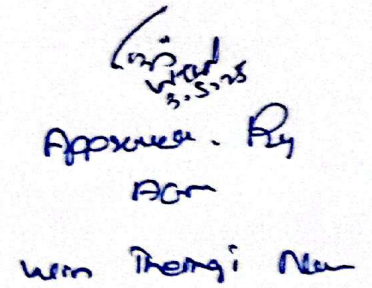 3.5.25
Approved. By
AGM
Win Theingi Nwe